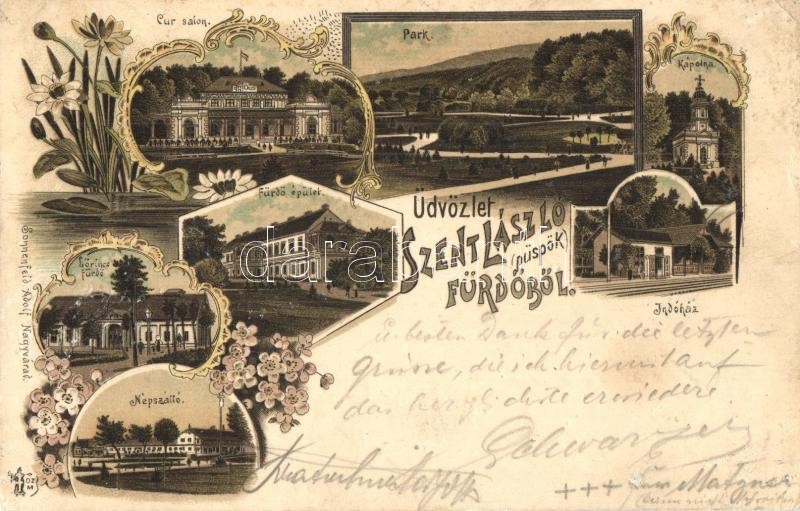 Cur salon.
Park.
Kápolna.
Fürdő épület.
Üdvözlet
SZENT LÁSZLÓ
(püspök)
FÜRDŐBŐL.
Lőrincz
fürdő
Indóház
Népszálló.
Sonnenfeld Adolf Nagyvárad.
darabanth
u. besten Dank für die letzten
Grüsse, die ich hiermit auf
das herzlichste erwiedere.